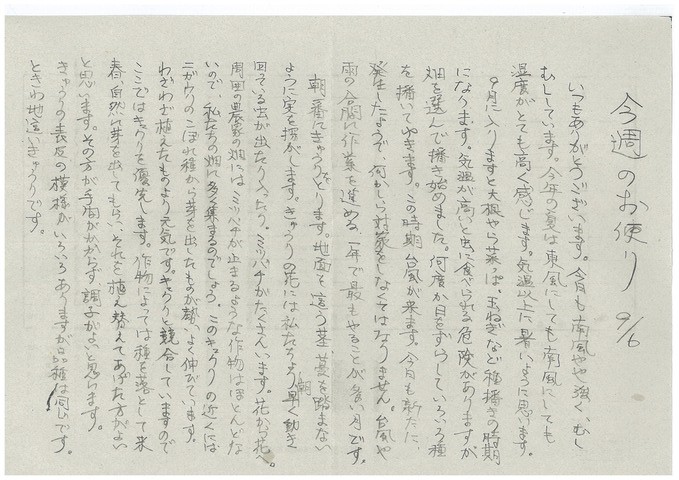 今週のお便り 9/6
いつもありがとうございます。今日も南風やや強く、むし
むししています。今年の夏は東風にしても南風にしても
湿度がとても高く感じます。気温以上に暑いように思います。
9月に入りますと大根やら菜っぱ、玉ねぎなど種播きの時期
になります。気温が高いと虫に食べられる危険がありますが
畑を選んで播き始めました。何度か日をずらしていろいろ種
を播いてゆきます。この時期台風が来ます。今日も新たに、
発生したようで、何かしら対策をしなくてはなりません。台風や
雨の合間に作業を進める、一年で最もやることが多い月です。
朝一番にきゅうりをとります。地面を這う茎、蔓を踏まない
ように実を探がします。きゅうりの花には私たちより朝早く動き
回っている虫が出たり入ったり。ミツバチがたくさんいます。花から花へ。
周囲の農家の畑にはミツバチが止まるような作物はほとんどな
いので、私たちの畑に多く集まるのでしょう。このきゅうりの近くには
ニガウリのこぼれ種から芽を出したものが勢いよく伸びています。
わざわざ植えたものより元気です。きゅうりと競合していますので
ここではキュウリを優先します。作物によっては種を落として来
春、自然に芽を出てもらい、それを植え替えてあげた方がよい
と思います。その方が手間がかからず調子がよいと思います。
きゅうりの表皮の模様がいろいろありますが品種は同じです。
ときわ地這いきゅうりです。